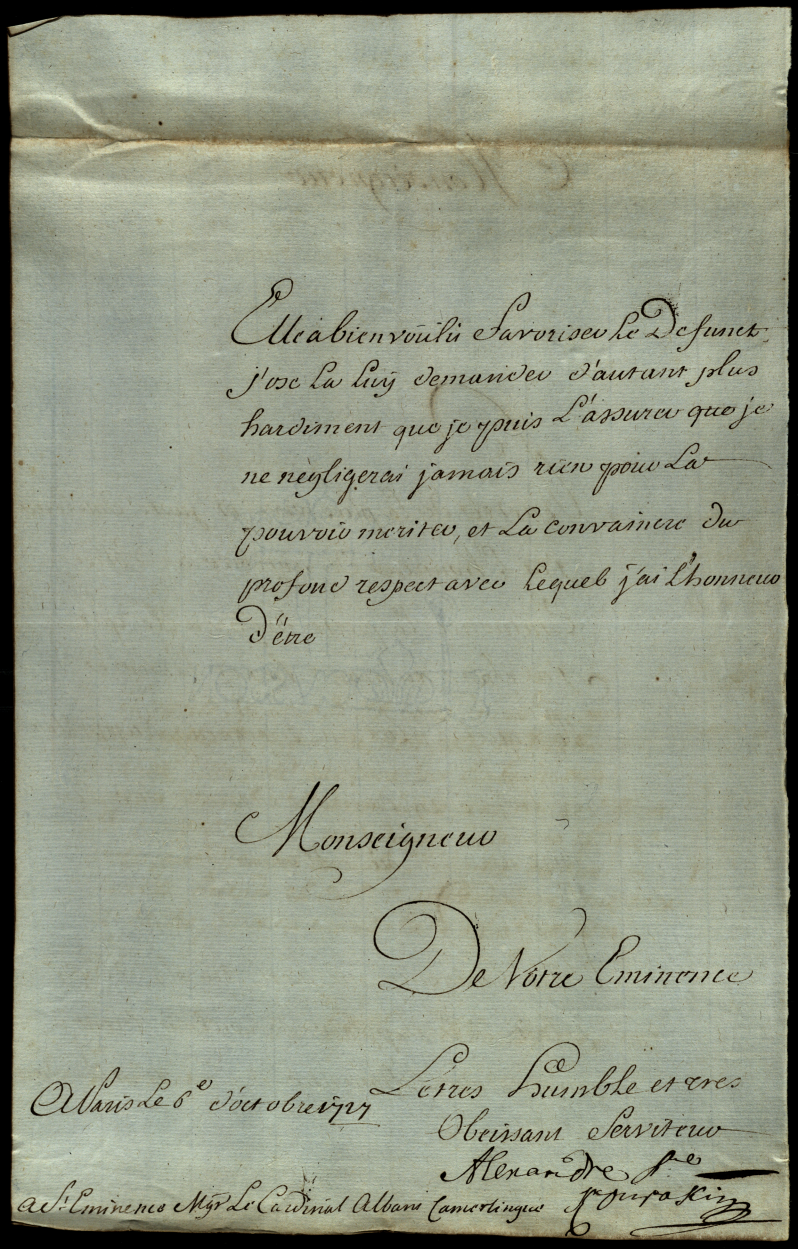 Elle à bien voulu Favoriser Le Defunct,
j'ose La Luy demander d'autant plus
hardiment que je puis L'assurer que je
ne negligerai jamais rien pour La
pouvoir meriter, et La convaincre du
profond respect avec Lequel j'ai L'honneur
D'être
Monseigneur
De Votre Eminence
Le tres Humble et tres
Obeissant Serviteur
A Paris Le 6e d'octobre 1727
Alexandre Pce
Kourakin
a S. Eminence Mgr Le Cardinal Albani Camerlingue